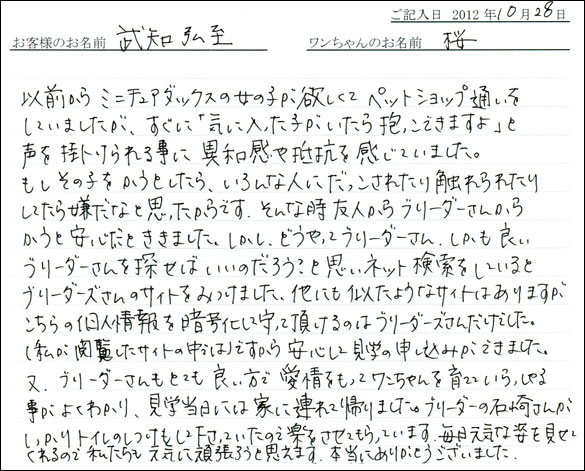 ご記入日 2012年10月28日
お客様のお名前 武知弘至 ワンちゃんのお名前 桜
以前から ミニチュアダックスの女の子が欲しくて ペットショップ通いを
していましたが、すぐに「気に入った子がいたら抱っこできますよ」と
声を掛けられる事に 異和感や抵抗を感じていました。
もし その子を かうとしたら、いろんな人に だっこされたり 触れられたり
してたら嫌だなと思ったからです。そんな時 友人から ブリーダーさんから
かうと安心だとききました。しかし、どうやってブリーダーさん、しかも良い
ブリーダーさんを探せばいいのだろう?と思いネット検索をしていると
ブリーダーズさんのサイトをみつけました、他にも似たようなサイトはありますが
こちらの個人情報を暗号化して守って頂けるのはブリーダーズさんだけでした。
(私が閲覧したサイトの中では)ですから 安心して見学の申し込みができました。
又、ブリーダーさんもとても 良い方で 愛情をもってワンちゃんを育てていらっしゃる
事がよくわかり、見学当日には家に連れて帰りました。ブリーダーの石崎さんが
しっかりトイレのしつけもして下さっていたので楽をさせてもらっています。毎日元気な姿を見せて
くれるので私たちも元気に頑張ろうと思えます。本当にありがとうございました。